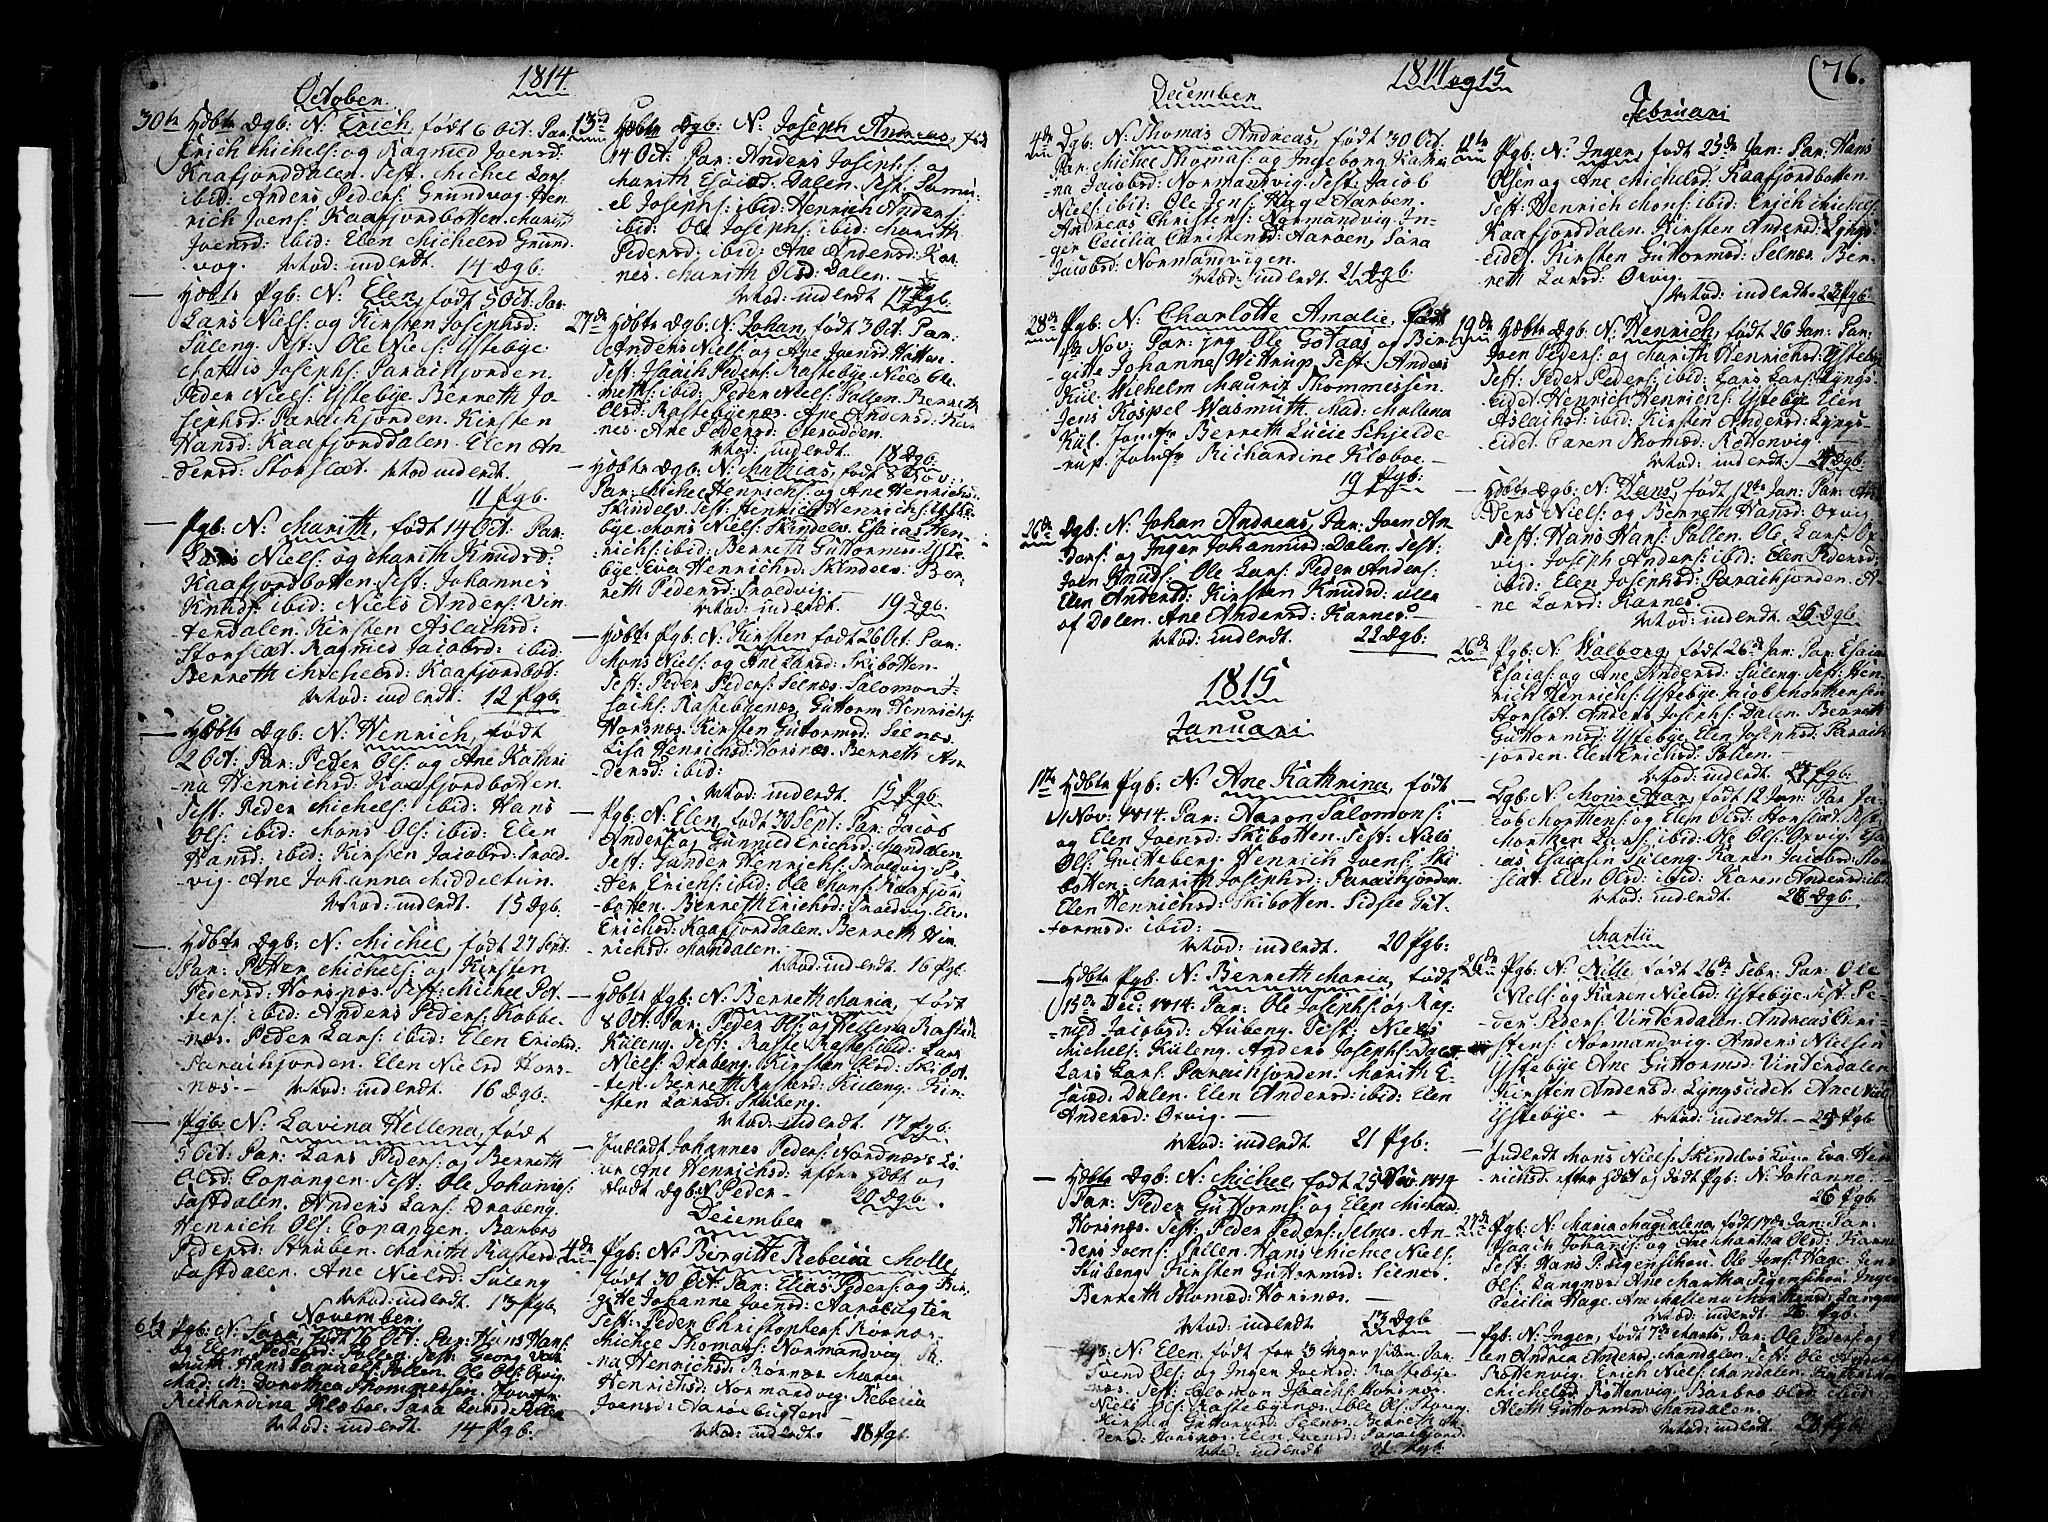 1814.
October.
30te Hdbte Dgb: N: Erich, født 6 Oct: Par:
Erich Michels: og Ragned Joensd:
Kaafjorddalen. Test: Michel Lars:
ibid: Anders Peders: Grundvog. Hen-
rich Joens: Kaafjordbotten. Marith
Joensd: ibid: Elen Michelsd Grund-
vog. Mod: indledt. 14 Dgb:
— Hdbte Pgb: N: Elen, født 5 Oct: Par:
Lars Niels: og Kirsten Josephsd:
Suleng. Test: Ole Niels: Ystebye
Mattis Josephs: Parachjorden.
Peder Niels: Ystebye. Berreth Jo-
sephsd: Parachjorden. Kirsten
Hansd: Kaafjorddalen. Elen An-
dersd: Storslæt. Mod indledt.
11 Pgb.
— Pgb: N: Marith, født 14 Oct: Par:
Lars Niels: og Marith Knudsd:
Kaafjordbotten. Test: Johannes
Knuds: ibid: Niels Anders: Vin-
terdalen. Kirsten Aslachsd:
Storslæt. Ragned Jacobsd: ibid:
Berreth Michelsd: Kaafjordbot:
Mod: indledt. 12 Pgb.
— Hdbte Dgb: N: Henrich, født
2 Oct: Par: Peder Ols: og Ane Kathri-
na Henrichsd: Kaafjordbotten.
Test: Peder Michels: ibid: Hans
Ols: ibid: Mons Ols: ibid: Elen
Hansd: ibid: Kirsten Jacobsd: Trold-
vig. Ane Johanna Middeltun.
Mod: indledt. 15 Dgb.
— Hdbte Dgb: N: Michel, født 27 Sept:
Par: Petter Michels: og Kirsten
Pedersd: Horsnæs. Test: Michel Pet-
ters: ibid: Anders Peders: Kobbe-
næs. Peder Lars: ibid: Elen Erichsd:
Parachjorden. Elen Nielsd Hors-
næs. Mod: indledt. 16 Dgb:
— Pgb: N: Lavina Hellena, født
5 Oct: Par: Lars Peders: og Berreth
Olsd: Copangen. Test: Ole Johans:
Fastdalen. Anders Lars: Draberg.
Henrich Ols: Copangen. Barbro
Pedersd: Struben. Marith Rastesd:
Fastdalen. Ane Nielsd: Suleng
Mod: indledt. 13 Pgb.
November.
6te Pgb: N: Sara, født 6 Oct: Par: Hans Hans:
og Elen Pedersd: Pollen. Test: Georg Vas-
muth. Hans Samuels: Pollen. Ole Ols: Orvig.
Mad: M: Dorothea Thommessen. Jomfr:
Richardina Kloboe. Sara Larsd: Pollen
Mod: indledt. 14 Pgb.
13de Hdbte Dgb: N: Joseph Andreas, født
14 Oct: Par: Anders Josephs: og
Marith Esaiæd: Dalen. Test: Samu-
el Josephs: ibid: Henrich Anders:
ibid: Ole Josephs: ibid: Marith
Pedersd: ibid: Ane Andersd: Kar-
nes. Marith Olsd: Dalen.
Mod: indledt 17 Dgb.
27de Hdbte Dgb: N: Johan, født 3 Oct: Par:
Anders Niels: og Ane Joensd: Hatten.
Test: Isach Peders: Rastebye. Niels Cle-
mets: ibid: Peder Niels: Pollen. Berreth
Olsd: Rastebyenæs. Ane Andersd: Kar-
nes. Ane Pedersd: Oteradden.
Mod: indledt. 18 Dgb.
— Hdbte Dgb: N: Mathias, født 8 Nov:
Par: Michel Henrichs: og Ane Henrichsd:
Skindelv. Test: Henrich Henrichs: Yste-
bye. Mons Niels: Skindelv. Esaias Hen-
richs: ibid: Berreth Guttormsd: Yste-
bye. Eva Henrichsd: Skindelv. Ber-
reth Pedersd: Troldvig.
Mod: indledt. 19 Dgb:
— Hdbte Pgb: N: Kirsten født 26 Oct: Par:
Mons Niels: og Ane Larsd: Skibotten.
Test: Peder Peders: Selnæs. Salomon I-
sachs: Rastebyenæs. Guttorm Henrichs:
Horsnæs. Kirsten Guttormsd: Selnæs.
Lisa Henrichsd: Horsnæs. Berreth An-
dersd: ibid:
Mod: indledt. 15 Pgb.
— Pgb: N: Elen, født 30 Sept: Par: Jacob
Anders: og Gunnild Erichsd: Mandalen.
Test: Gunder Henrichs: Troldvig. Pe-
der Erichs: ibid: Ole Mons: Kaafjord-
botten. Berreth Erichsd: Troldvig. Elen
Erichsd: Kaafjorddalen. Berreth Hen-
richsd: Mandalen.
Mod: indledt. 16 Pgb.
— Hdbte Pgb: N: Berreth Maria, født
8 Oct: Par: Peder Ols: og Hellena Rastesd:
Kuleng. Test: Raste Rastes: ibid: Lars
Niels: Draberg. Kirsten Olsd: Skibot-
ten. Berreth Rastesd: Kuleng. Kir-
sten Larsd: Stuberg.
Mod: indledt. 17 Pgb.
— Indledt Johannes Peders: Nordnæs Ko-
ne Ane Henrichsd: efter hdbt og
dødt Dgb: N: Peder. 20 Dgb.
December
4de Pgb: N: Birgitte Rebecca Molle,
født 30 Oct: Par: Elias Peders: og Bir-
gitte Johanne Joensd: Aarøbugten
Test: Peder Christophers: Rørnæs.
Michel Thomas: Normandvog. An-
na Henrichsd: Rørnæs. Maria
Henrichsd: Normandvig. Rebecca
Joensd: Aarøebugten
Mod: indledt. 18 Pgb.
1814 og 15
(76.
December
4de Dgb: N: Thomas Andreas, født 30 Oct.
Par: Michel Thomas: og Ingeborg Kathri-
na Jacobsd: Normandvig. Test: Jacob
Niels: ibid: Ole Jens: Hage Aarøen.
Andreas Christens: Normandvig. In-
ger Cecilia Christensd: Aarøen, Sara
Jacobsd: Normandvigen.
Mod: indledt. 21 Dgb.
28de Pgb: N: Charlotte Amalie, født
Nov: Par: Ole Gotaas og Bir-
gitte Johanne Wittrup. Test: Anders
Kul. Wilhelm Mauritz Thommessen.
Jens Rospel Wasmuth. Mad: Mallena
Kul. Jomfr Berreth Lucie Schjelde-
rup. Jomfr Richardine Kloboe.
19 Pgb:
26de Dgb: N: Johan Andreas, Par: Joen An-
ders: og Inger Johannisd: Dalen. Test:
Joen Knuds: Ole Lars: Peder Anders:
Elen Andersd: Kirsten Knudsd: alle
af Dalen. Ane Andersd: Karnes.
Mod: indledt. 22 Dgb:
1815
Januari
1te Hdbte Pgb: N: Ane Kathrina, født
1 Nov: 1814. Par: Aaron Salomons:
og Elen Joensd: Skibotten. Test: Niels
Ols: Gvitteberg. Henrich Joens: Ski-
botten. Marith Josephsd: Parachjorden.
Elen Henrichsd: Skibotten. Sidsel Gut-
tormsd: ibid:
Mod: indledt. 20 Pgb:
— Hdbte Pgb: N: Berreth Maria, født
15de Dec: 1814. Par: Ole Josephs: og Rag-
nild Jacobsd: Stuberg. Test: Niels
Michels: Kuleng. Anders Josephs: Dalen
Lars Lars: Parachjorden. Marith E-
saiæd: Dalen. Elen Andersd: ibid: Elen
Andersd: Orvig.
Mod: indledt. 21 Pgb:
— Hdbte Dgb: N: Michel, født 25 Nov: 1814
Par: Peder Guttorms: og Elen Michelsd
Horsnæs. Test: Peder Peders: Selnes. An-
ders Joens: Pollen. Hans Michel Niels:
Stuberg. Kirsten Guttormsd: Selnes.
Berreth Thomæd: Horsnæs.
Mod: indledt. 23 Dgb
Pgb: N: Elen, født for 3 Uger siden. Par:
Svend Ols: og Inger Joensd: Rastebye-
næs. Test: Salomon Isachs: Horsnes.
Niels Ols: Rastebyenæs. Ole Ols:
Kirsten Guttormsd: Selnæs. Berreth An-
dersd: Horsnæs. Elen Larsd: Parachjord:
Mod: indledt 22 Pgb.
Februari
12te Pgb: N: Inger, født 25de Jan: Par: Hans
Olsen og Ane Michelsd: Kaafjordbotten
Test: Henrich Mons: ibid: Erich Michels:
Kaafjorddalen. Kirsten Andersd: Lyngs-
eidet. Kirsten Guttormsd: Selnæs. Ber-
reth Larsd: Orvig.
Mod: indledt. 23 Pgb.
19de Hdbte Dgb: N: Henrich, født 26 Jan: Par:
Joen Peders: og Marith Henrichsd: Ystebye
Test: Peder Peders: ibid: Lars Lars: Lyngs-
eidet. Henrich Henrichs: Ystebye. Elen
Aslachsd: ibid: Kirsten Andersd: Lyngs-
eidet. Caren Thomæd: Rottenvig.
Mod: indledt. 24 Dgb:
— Hdbte Dgb: N: Hans, født 12te Jan: Par: An-
ders Niels: og Berreth Hansd: Orvig
Test: Hans Hans: Pollen. Ole Lars: Or-
vig. Joseph Anders: ibid: Elen Pedersd:
ibid: Elen Josephsd: Parachjorden. A-
ne Larsd: Karnes.
Mod: indledt. 25 Dgb:
26de Pgb: N: Walborg, født 26de Jan: Par: Esaias
Esaias: og Ane Andersd: Suleng. Test: Hen-
rich Henrichs: Ystebye. Jacob Morthensen
Storslæt. Anders Josephs: Dalen. Berreth
Guttormsd: Ystebye. Elen Josephsd: Parach-
jorden. Elen Erichsd: Pollen.
Mod: indledt 24 Pgb.
Dgb: N: Mons Aar, født 12 Jan: Par: Ja-
cob Morthens: og Elen Olsd: Storslæt. Test:
Morthen Lars: ibid: Ole Ols: Orvig. Esa-
ias Esaiasen Suleng. Karen Jacobsd: Stor-
slæt. Elen Olsd: ibid: Karen Andersd: ibid:
Mod: indledt. 26 Dgb:
Martii
26de Pgb: N: Nille, født 26de Febr: Par: Ole
Niels: og Karen Nielsd: Ystebye. Test: Pe-
der Peders: Vinterdalen. Andreas Chri-
stens: Normandvig. Anders Nielsen
Ystebye. Ane Guttormsd: Vinterdalen.
Kirsten Andersd: Lyngseidet. Ane Niels
Ystebye. Mod: indledt. 25 Pgb
Indledt Mons Niels: Skindelvs Kone Eva Hen-
richsd: efter hdbt og dødt Pgb: N: Johanne.
26 Pgb:
27de Pgb: N: Maria Magdalena, født 17de Jan: Par:
Isach Johans: og Ane Martha Olsd: Karnes
Test: Hans P: Figenschou. Ole Jens: Hage. Jens
Ols: Langnæs. Ane Martha Figenschou. Inger
Cecilia Hage. Ane Mallena Morthensd: Langnæs
Mod: indledt. Pgb:
— Pgb: N: Inger, født 7de Marts, Par: Ole Peders: og E-
len Andrea Andersd: Mandalen. Test: Ole Anders:
Rottenvig. Erich Niels: Mandalen. Kathrina
Michelsd: Rottenvig. Barbro Olsd: ibid:
Aleth Guttormsd: Mandalen.
Mod: indledt. 28 Pgb: